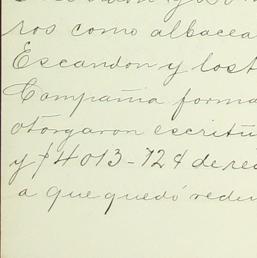 ros como albacea
Escandon y los t
Compañia forma
otorgaron escritu
y $4013-72¢ de re
a que quedó redi